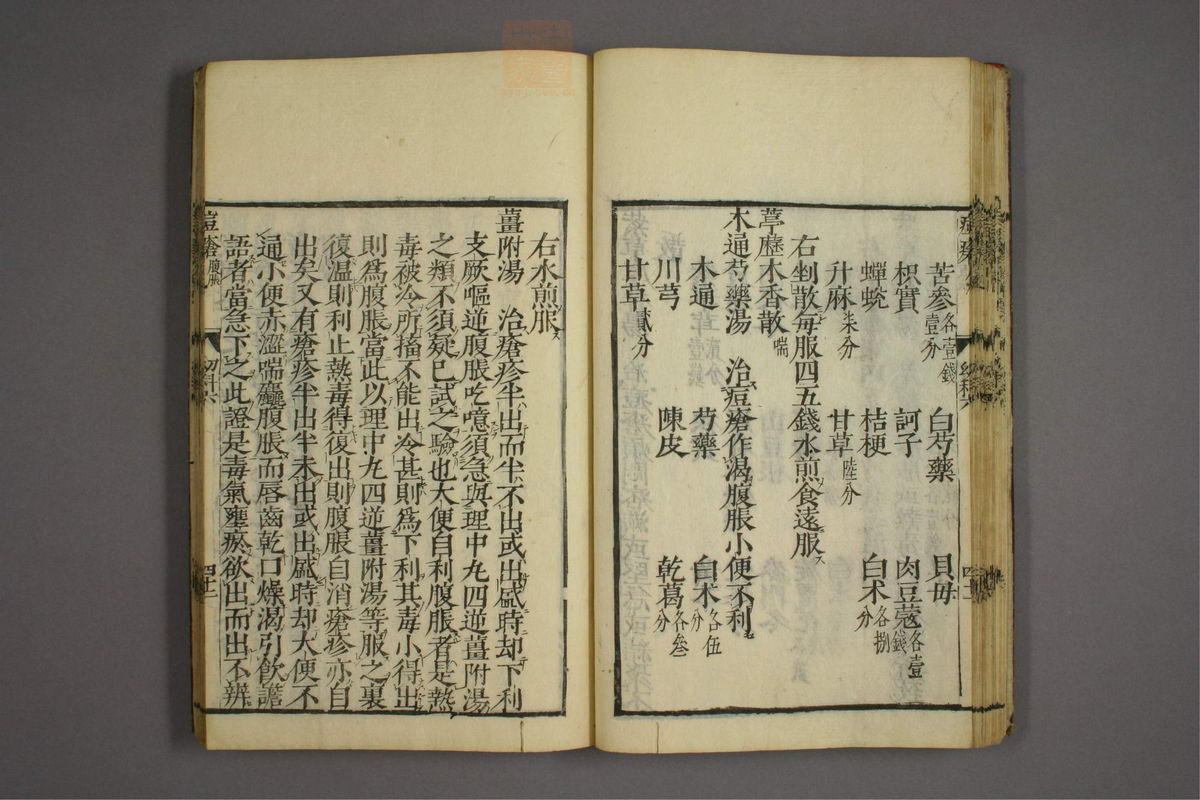 苦參各壹錢壹分 白芍藥 貝母
枳實 訶子 肉豆蔻各壹錢
蟬蛻 桔梗 白朮各捌分
升麻柒分 甘草陸分
右剉散每服四五錢水煎食遠服
葶藶木香散喘
木通芍藥湯 治痘瘡作渴腹脹小便不利
木通 芍藥 白朮各伍分
川芎 陳皮 乾葛各叁分
甘草貳分
右水煎服
薑附湯 治瘡疹半出而半不出或出盛時却下利
支厥嘔逆腹脹吃噫須急與理中丸四逆薑附湯
之類不須疑已試之驗也大便自利腹脹者是熱
毒被冷所搐不能出冷甚則爲下利其毒小得出
則爲腹脹當此以理中丸四逆薑附湯等服之裏
復温則利止熱毒得復出則腹脹自消瘡疹亦自
出矣又有瘡疹半出半未出或出盛時却大便不
通小便赤澀喘麤腹脹而唇齒乾口燥渴引飲譫
語者當急下之此證是毒氣壅瘀欲出而出不辨
痘瘡腹脹 幼科六 四十二